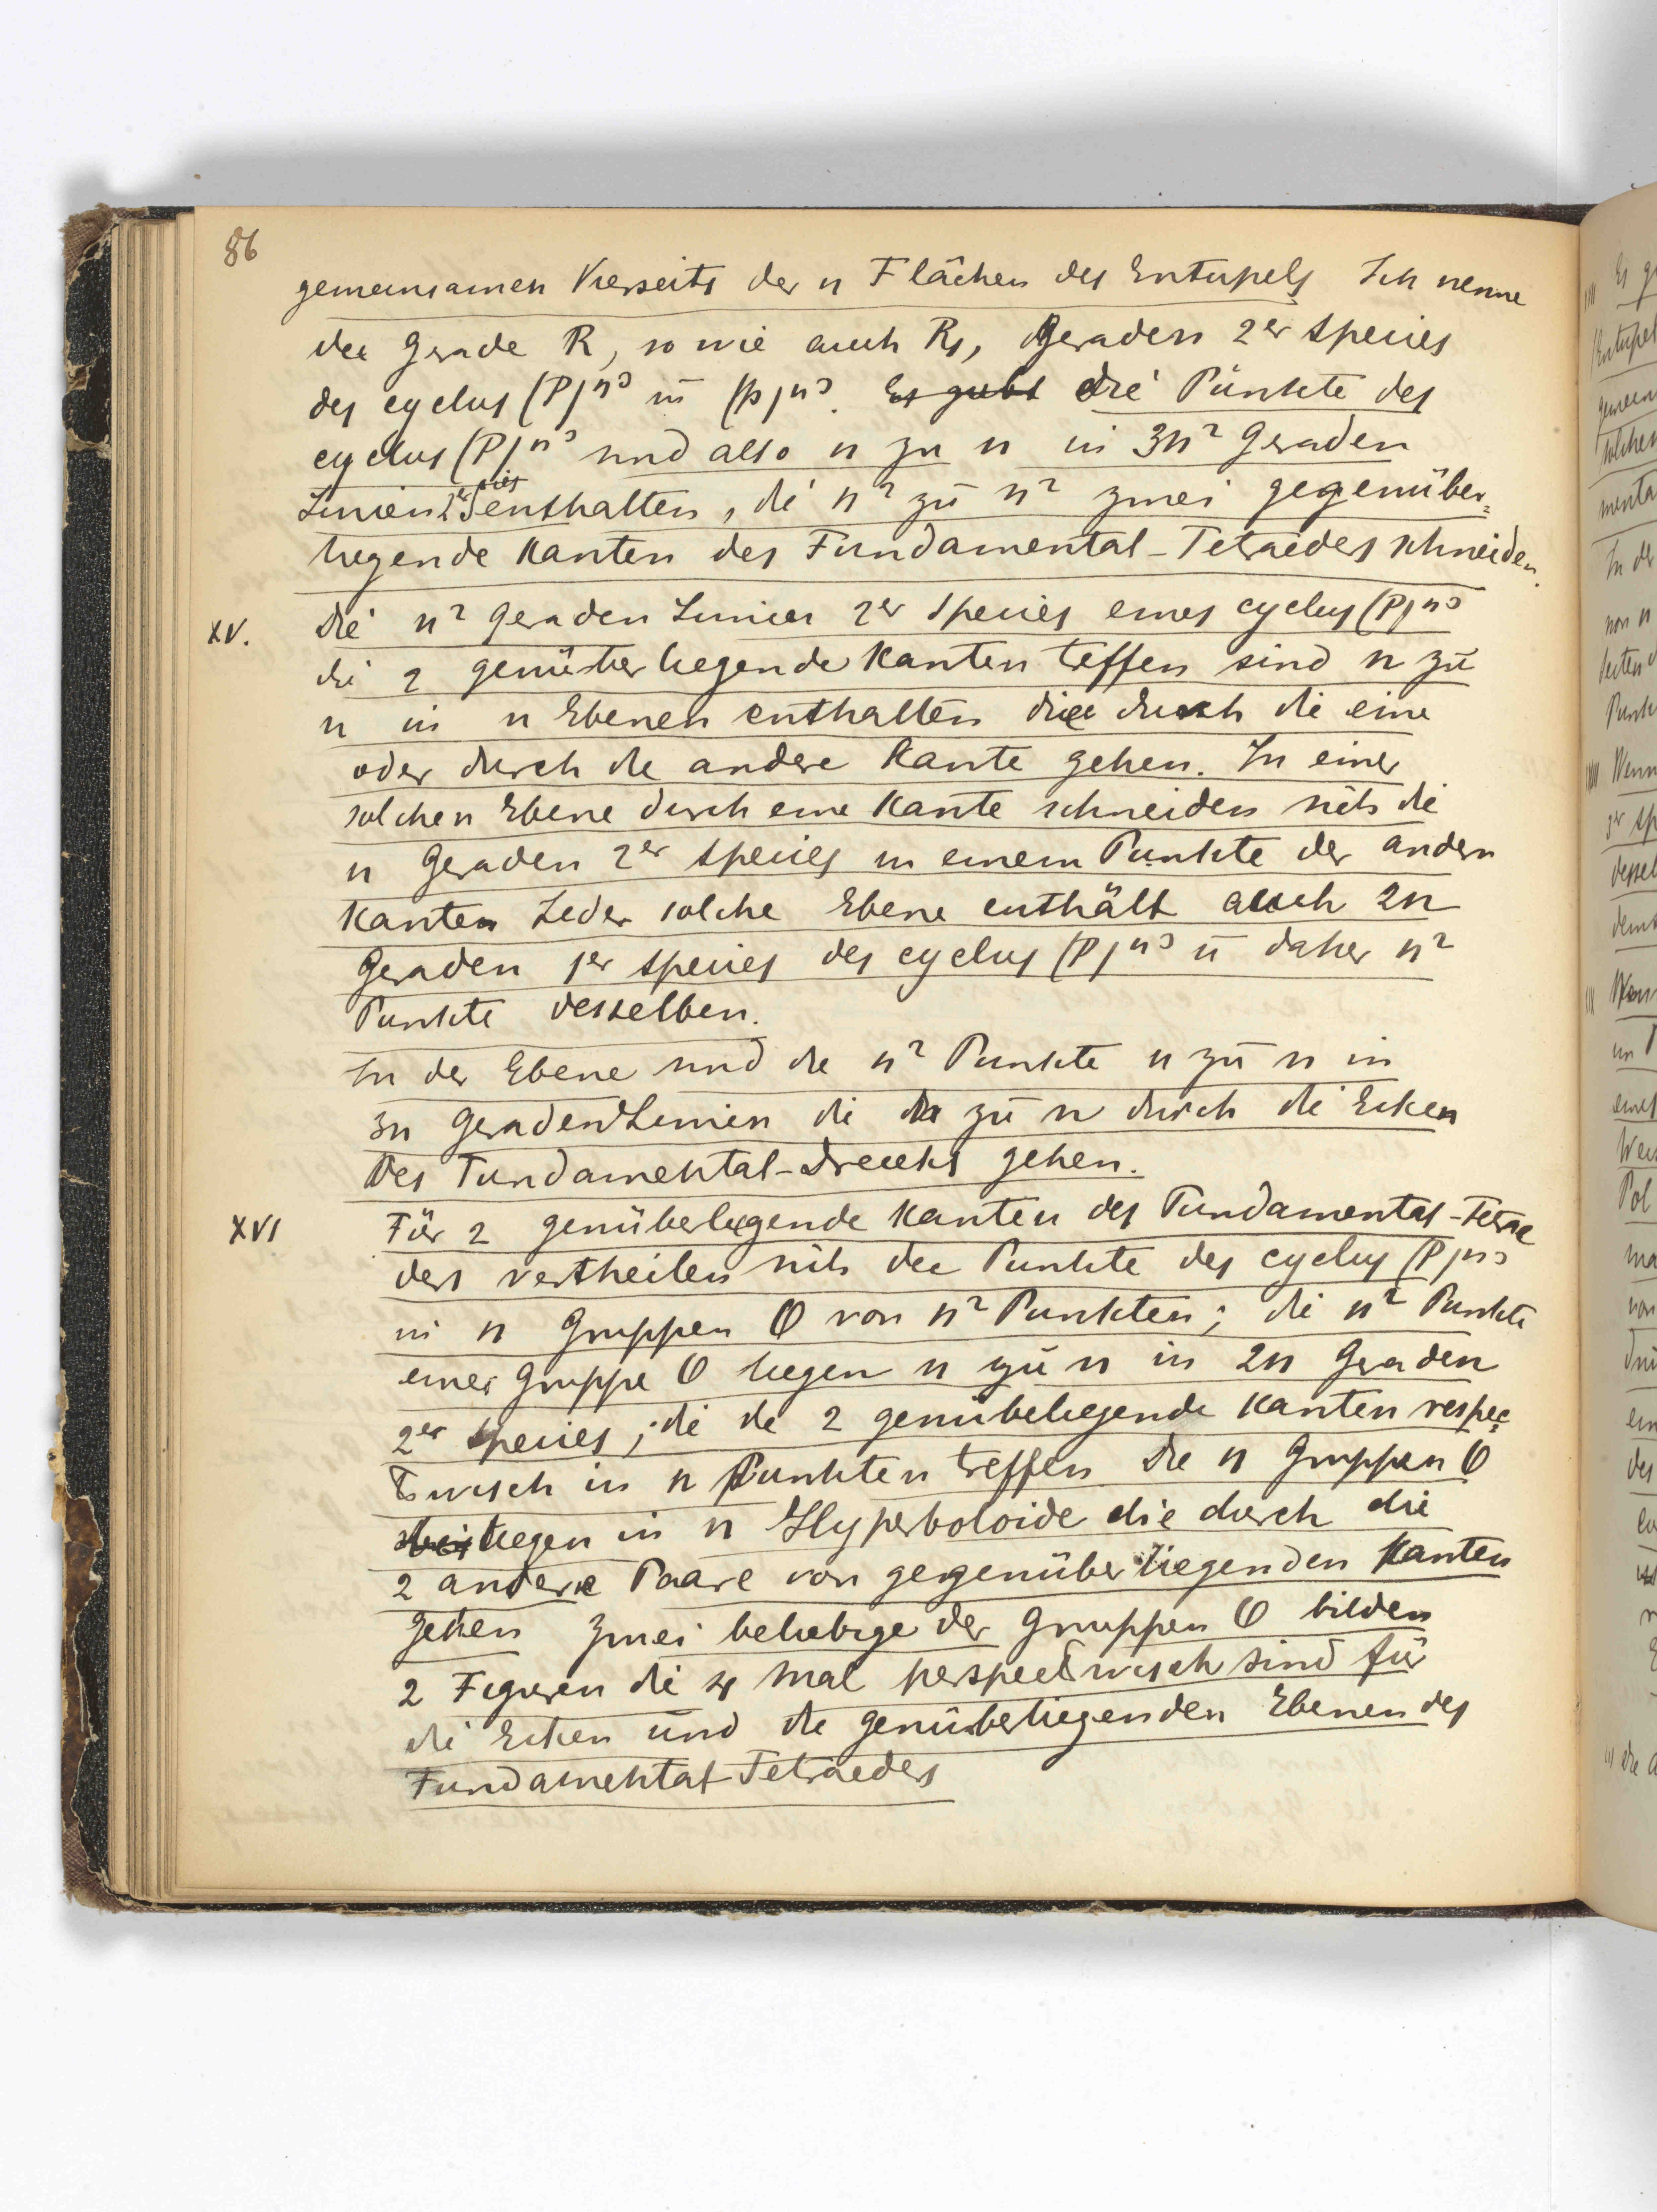 86
gemeinsamen Vierseits der n Flächen des Entupels Ich nenne
die Gerade R, so wie auch R₁, Geraden 2er Species
des cyclus (P)n³ ū (p)n³. Es giebt die Punkte des
cyclus (P)n³ sind also n zu n in 3n² Geraden
Linien 2er Spcies enthalten, die n² zu n² zwei gegenüber=
liegende Kanten des Fundamental-Tetraeders schneiden.
XV. Die n² Geraden Linien 2er Species eines cyclus (P)n³
die 2 genüberliegende Kanten teffen sind n zu
n in n Ebenen enthalten die durch die eine
oder durch die andere Kante gehen. In einer
solchen Ebene durch eine Kante schneiden sich die
n Geraden 2er Species in einem Punkte der andern
Kanten Jeder solche Ebene enthält auch 2n
Geraden 1er Species des cyclus (P)n³ ū daher n²
Punkte desselben.
In der Ebene sind die n² Punkte n zu n in
3n Geraden Linien die n zu n durch die Ecken
des Fundamental-Dreiecks gehen.
XVI Für 2 genüberliegende Kanten des Fundamental-Tetrae
ders vertheilen sich die Punkte des cyclus (P)n³
in n Gruppen O von n² Punkten; die n² Punkte
einer Gruppe O liegen n zu n in 2n Graden
2er Species; die die 2 genübeliegende Kanten respec=
tivisch in n Punkten treffen Die n Gruppen O
liegen in n Hyperboloide die durch die
2 andere Paare von gegenüberliegenden Kanten
gehen Zwei beliebige der Gruppen O bilden
2 Figuren die 4 mal perspectivisch sind für
die Ecken und die genüberliegenden Ebenen des
Fundamental-Tetraeders